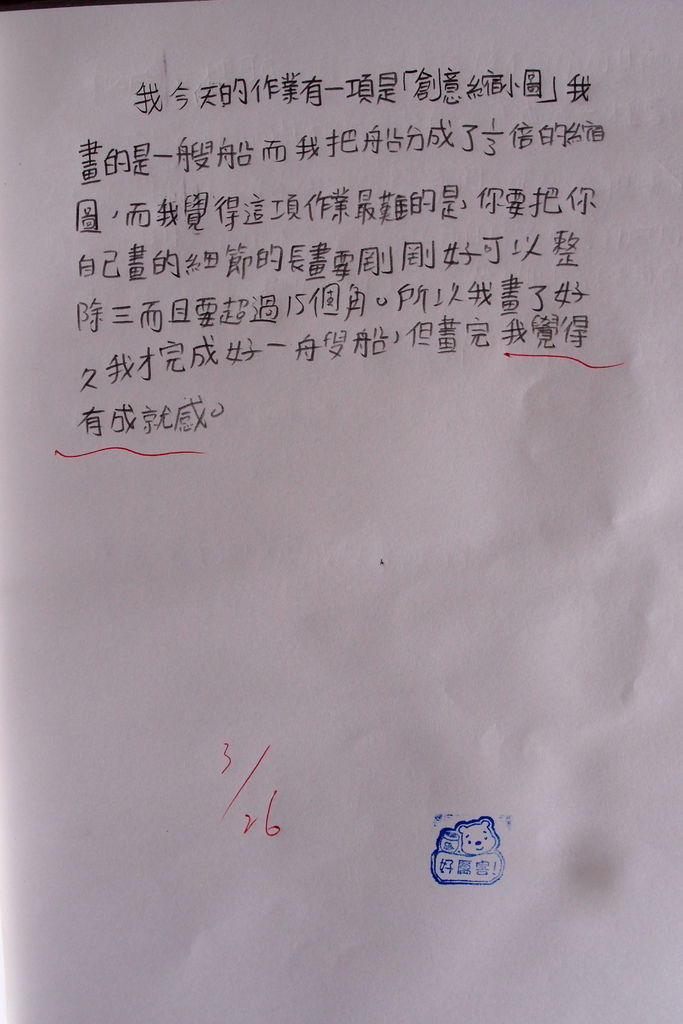 我今天的作業有一項是「創意縮小圖」我
畫的是一艘船而我把船分成了1/3倍的縮
圖，而我覺得這項作業最難的是，你要把你
自己畫的細節的長畫要剛剛好可以整
除三而且要超過15個角。所以我畫了好
久我才完成好一艘船，但畫完我覺得
有成就感。
3/26
好厲害!